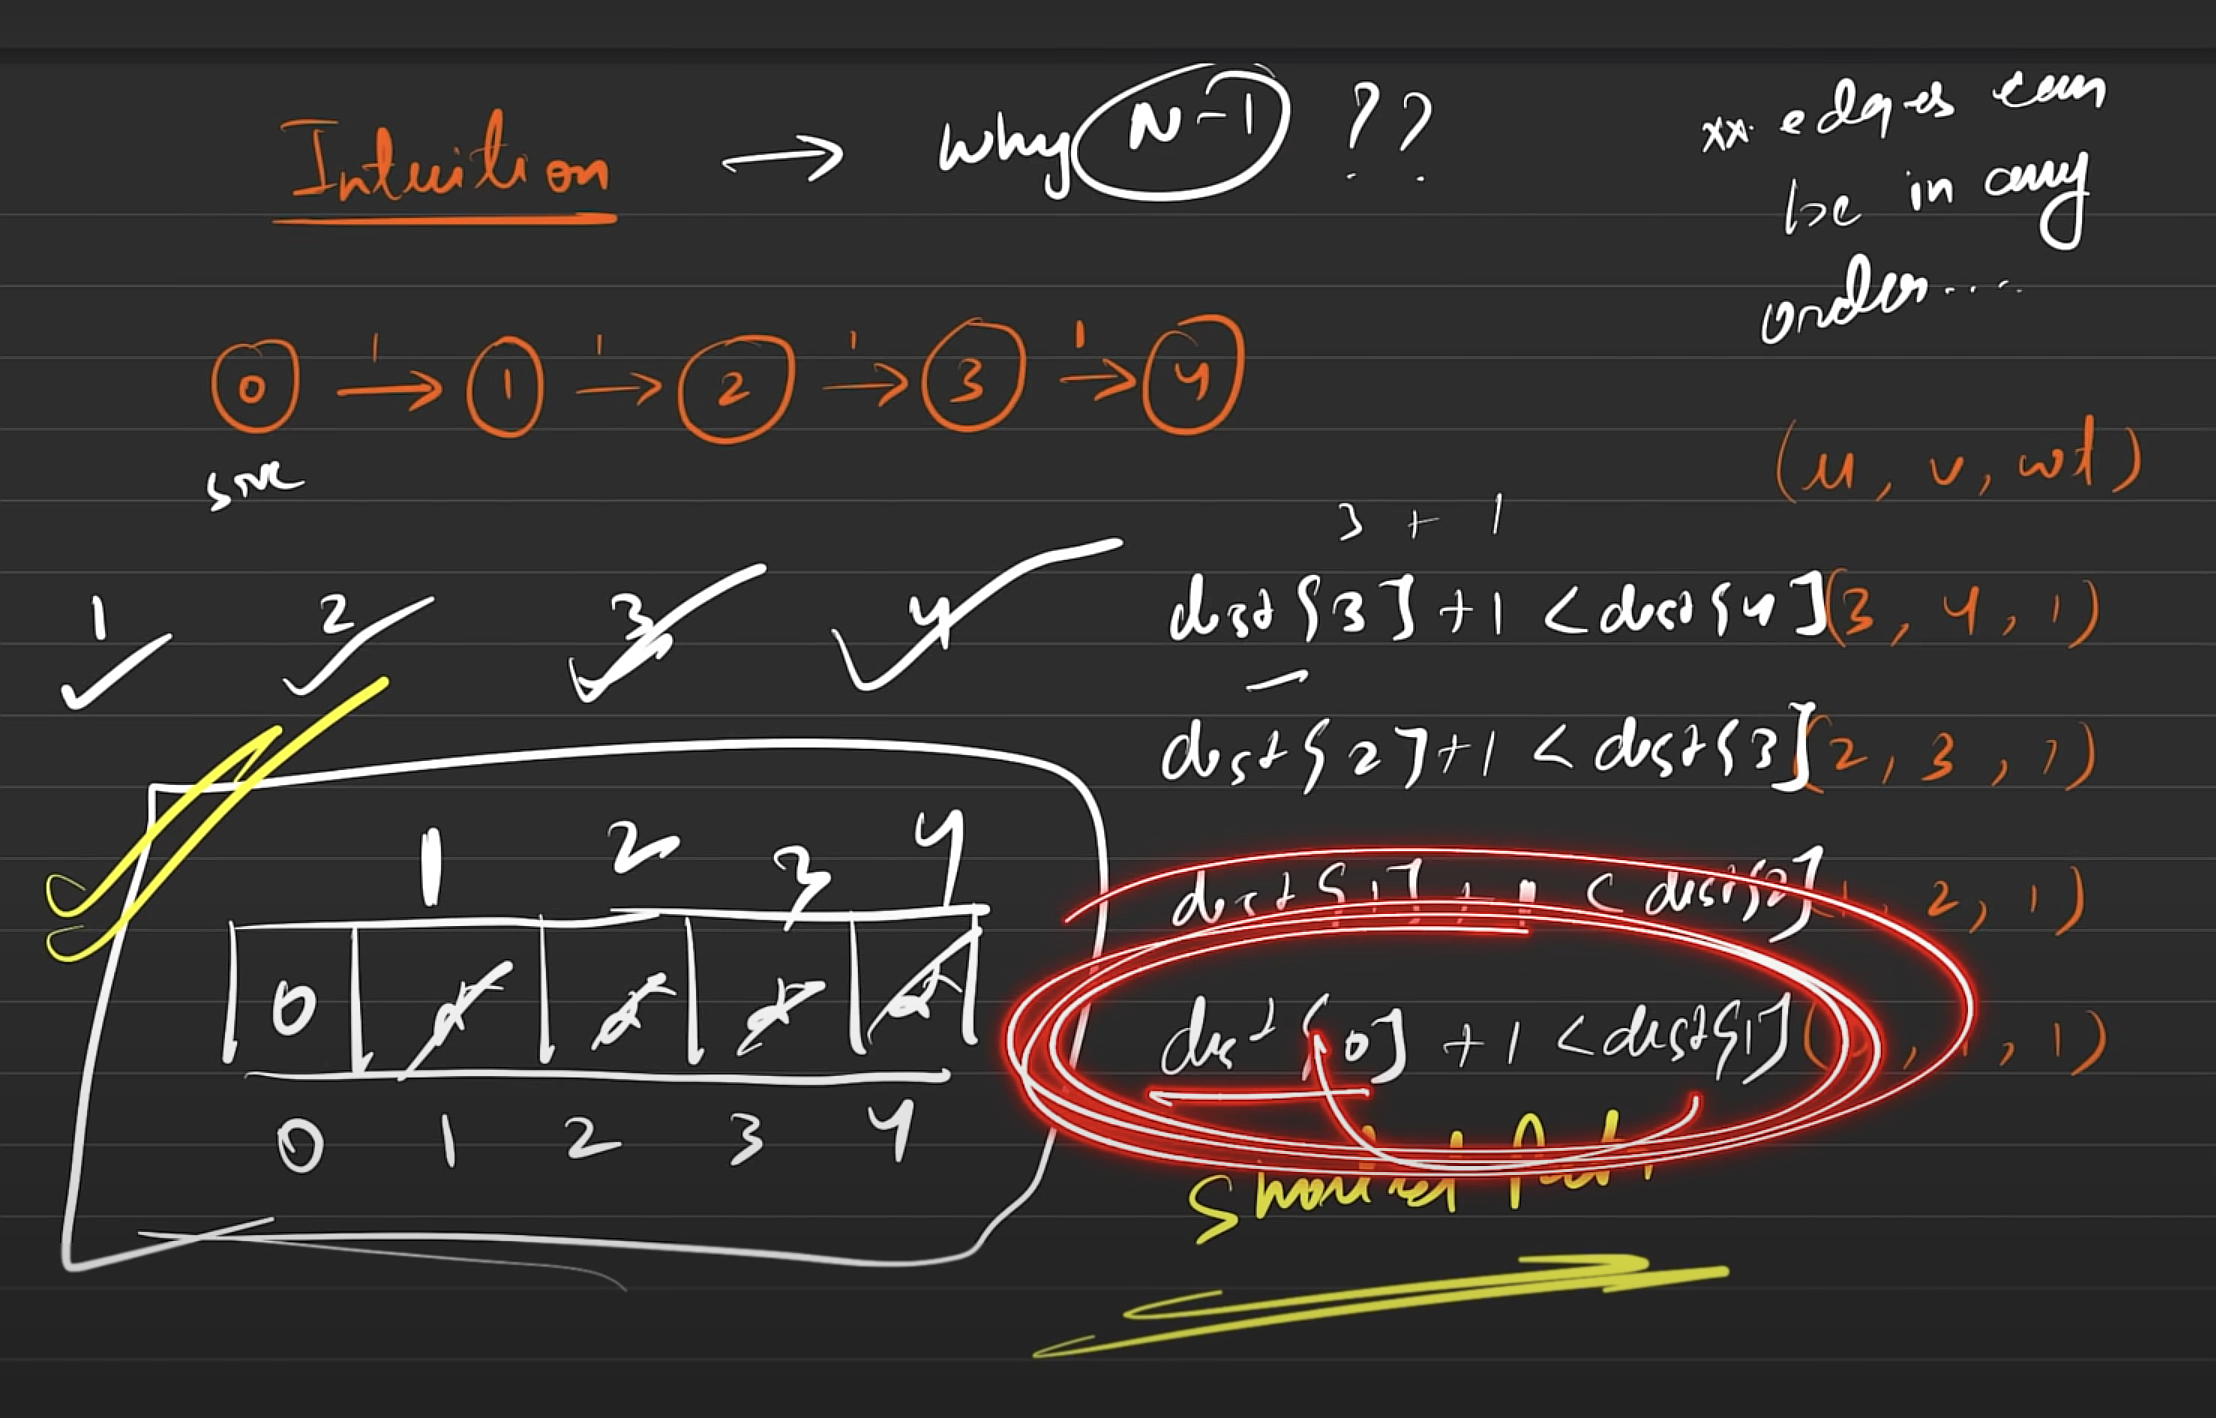 Intuition → Why N-1 ??
xx. edges can
be in any
order....
1 1 1 1
0 → 1 → 2 → 3 → 4
src
(u, v, wt)
3 + 1
1 2 3 4
dist[3] + 1 < dist[4] (3, 4, 1)
dist[2] + 1 < dist[3] (2, 3, 1)
dist[1] + 1 < dist[2] (1, 2, 1)
dist[0] + 1 < dist[1] ( , 1, 1)
1 2 3 4
0
0 1 2 3 4